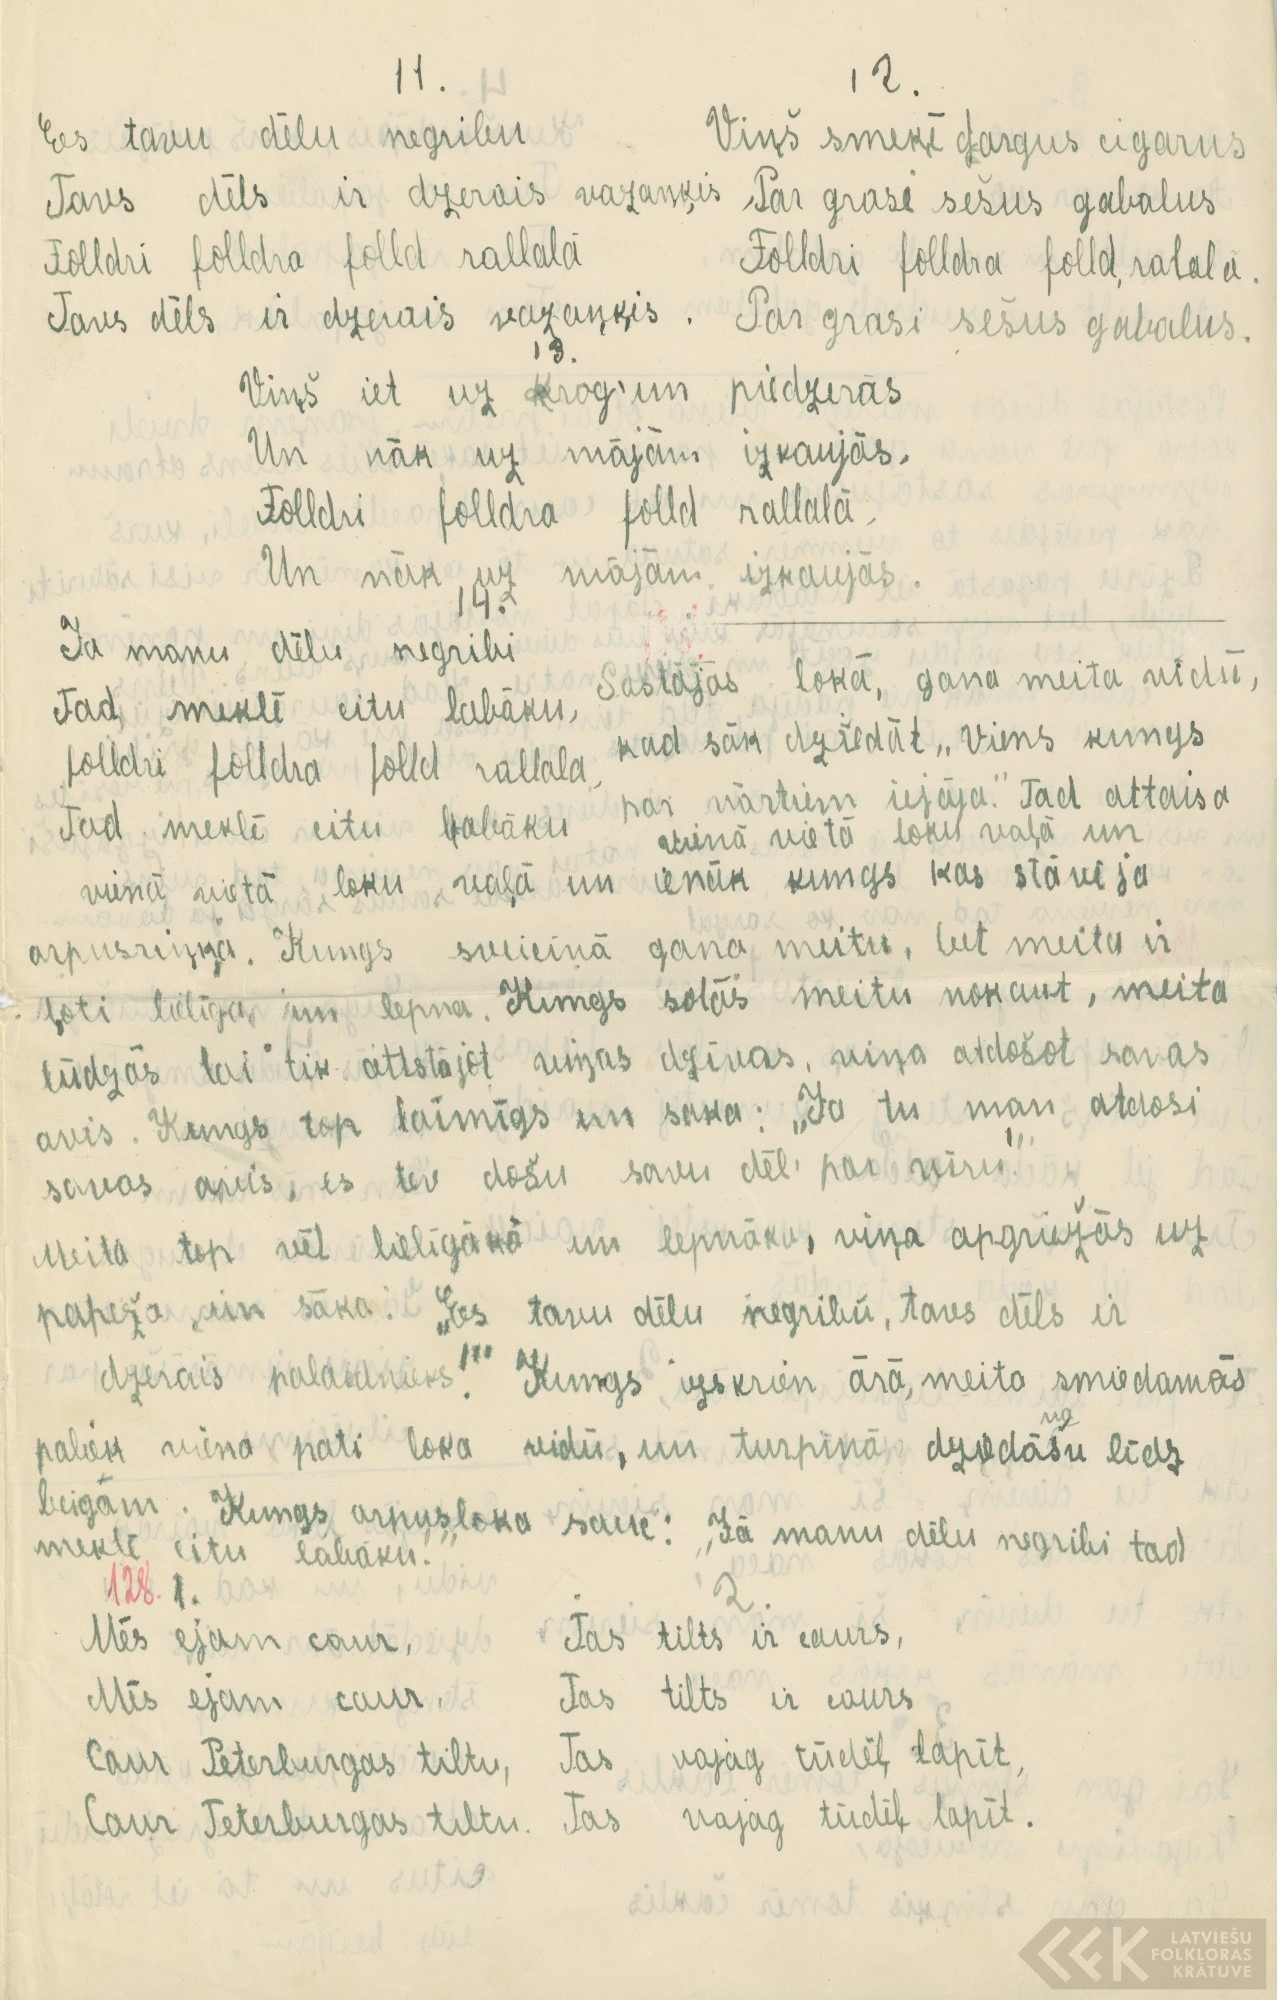 11.
Es tavu dēlu negribu
Tavs dēls ir dzerais vazaņķis
Folldri folldra folld rallalā
Tavs dēls ir dzerais vazaņķis.
12.
Viņš smeķē gargus cigarus
Par grasi sešus gabalus
Folldri folldra folld, ralalā.
Par grasi sešus gabalus.
13.
Viņš iet uz krog' un piedzerās
Un nāk uz mājām izkaujās.
Folldri folldra folld rallalā,
Un nāk uz mājām izkaujās.
14.
Ja manu dēlu negribi
Tad meklē citu labāku,
folldri folldra folld rallala,
Tad meklē citu labāku
Sastājās lokā, gana meita vidū,
kad sāk dziedāt „Viens kungs
par vārtiem iejāja." Tad attaisa
vienā vietā loku vaļā un
vienā vietā loku vaļā un ienāk kungs kas stāvēja
arpusriņķa. Kungs sveicinā gana meitu, bet meita ir
ļoti lielīga un lepna. Kungs solās meitu nokaut, meita
lūdzās lai tik attstājot viņas dzīvas, viņa atdošot savas
avis. Kungs top laimīgs un saka: „Ja tu man atdosi
savas avis, es tev došu savu dēl' par vīru!"
Meita top vēl lielīgāka un lepnāka, viņa apgriežās uz
papeža un sāka: „Es tavu dēlu negribu, tavs dēls ir
dzerais palaidnieks!" Kungs izskrien ārā, meita smiedamās
paliek viena pati loka vidū, un turpinā dziedāšu līdz
na
beigām. Kungs arpusloka sauc: „Jā manu dēlu negribi tad
meklē citu labāku!"
128. 1.
Mēs ejam caur,
Mēs ejam caur,
Caur Pēterburgas tiltu,
Caur Pēterburgas tiltu.
2.
Tas tilts ir caurs,
Tas tilts ir caurs
Tas vajag tūdēļ lapīt,
Tas vajag tūdēļ lapīt.
LATVIEŠU
FOLKLORAS
KRĀTUVE